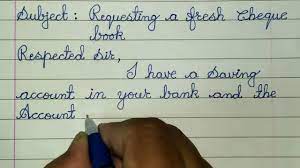 Subject : Requesting a fresh Cheque
book
Respected Sir,
I have a Saving
account in your bank and the
Account